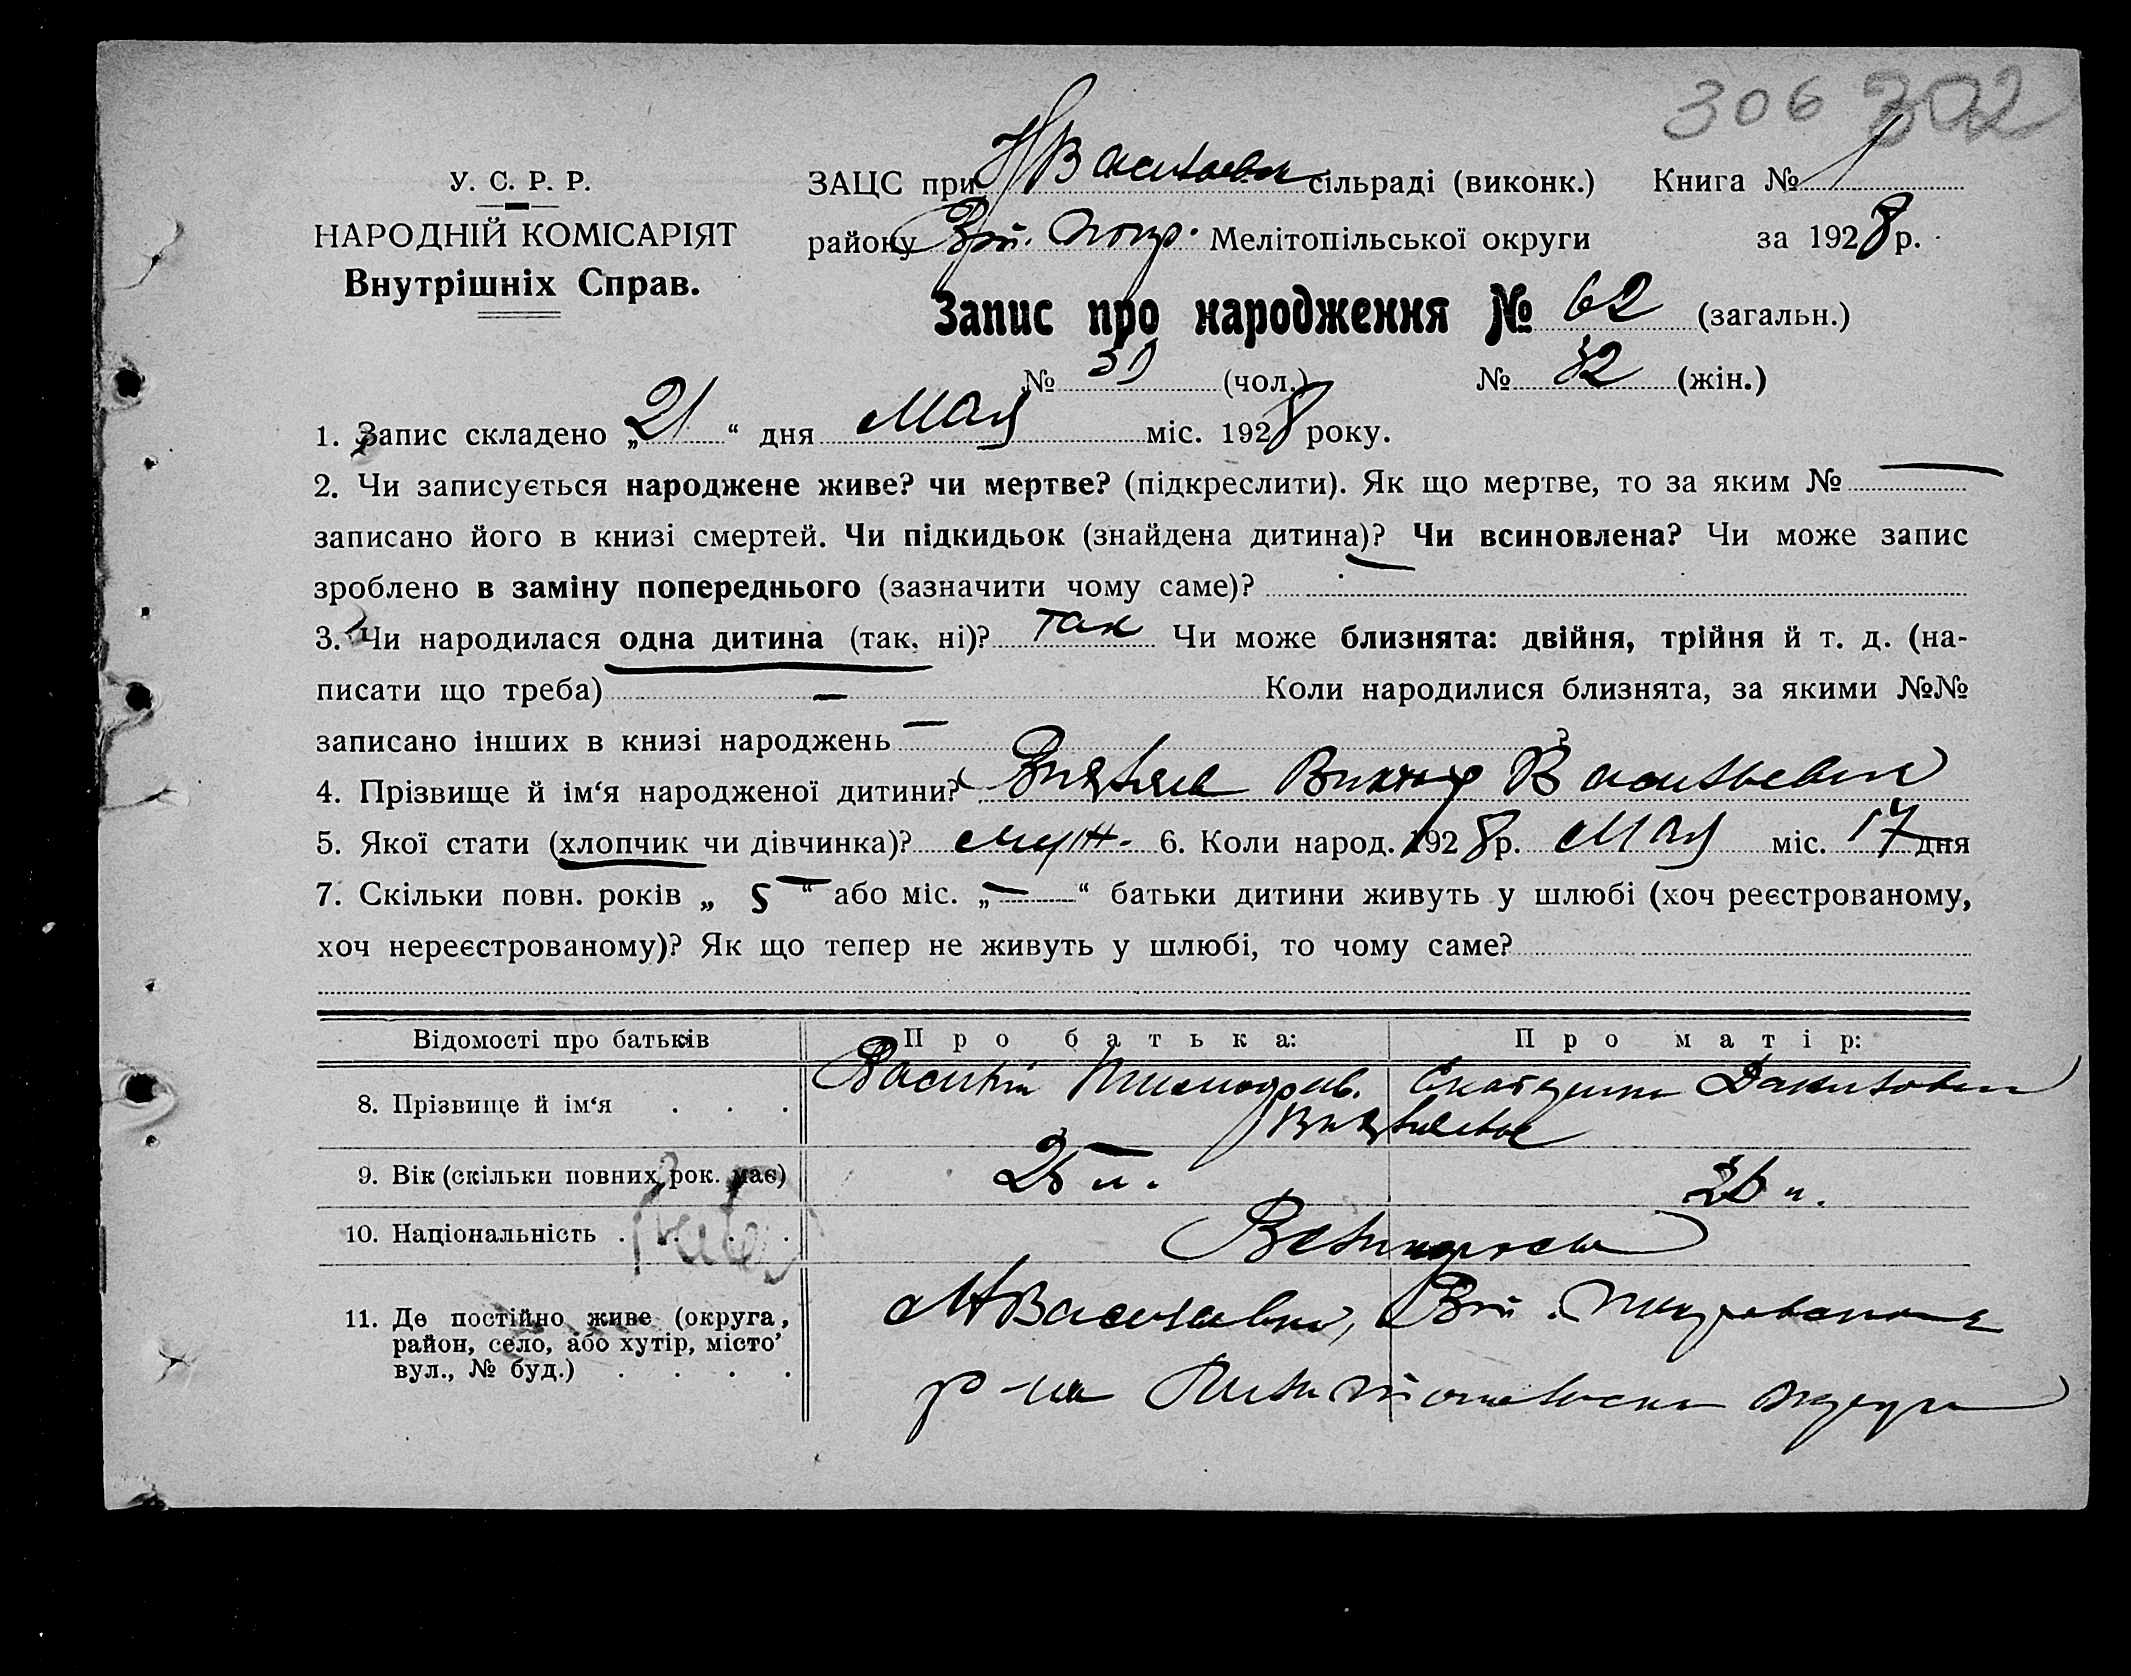 306 302
У. С. Р. Р.
НАРОДНІЙ КОМІСАРІЯТ
Внутрішніх Справ.
ЗАЦС при сільраді (виконк.) Книга № 1
району Мелітопільської округи за 1928 р.
Запис про народження № 62 (загальн.)
№ (чол.) № 32 (жін.)
1. Запис складено „21“ дня Мая міс. 1928 року.
2. Чи записується народжене живе? чи мертве? (підкреслити). Як що мертве, то за яким № —
записано його в книзі смертей. Чи підкидьок (знайдена дитина)? Чи всиновлена? Чи може запис
зроблено в заміну попереднього (зазначити чому саме)? —
3. Чи народилася одна дитина (так, ні)? так Чи може близнята: двійня, трійня й т. д. (на-
писати що треба) — Коли народилися близнята, за якими №№
записано інших в книзі народжень — ?
4. Прізвище й ім‘я народженої дитини? Виктор Васильевич
5. Якої стати (хлопчик чи дівчинка)? муж. 6. Коли народ. 1928 р. Мая міс. 17 дня
7. Скільки повн. років „ 5 “ або міс. „ — “ батьки дитини живуть у шлюбі (хоч реєстрованому,
хоч нереєстрованому)? Як що тепер не живуть у шлюбі, то чому саме?
Відомості про батьків Про батька: Про матір:
8. Прізвище й ім‘я . . . Василий
9. Вік (скільки повних рок. має) 25 л.
10. Національність . . . . Великорос
11. Де постійно живе (округа,
район, село, або хутір, місто’
вул., № буд.) . . . .
р-на округи